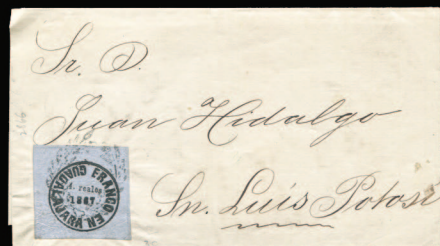 Sr. D.
Juan Hidalgo
Sn. Luis Potosí
FRANCO EN GUADALAJARA
reales
1867